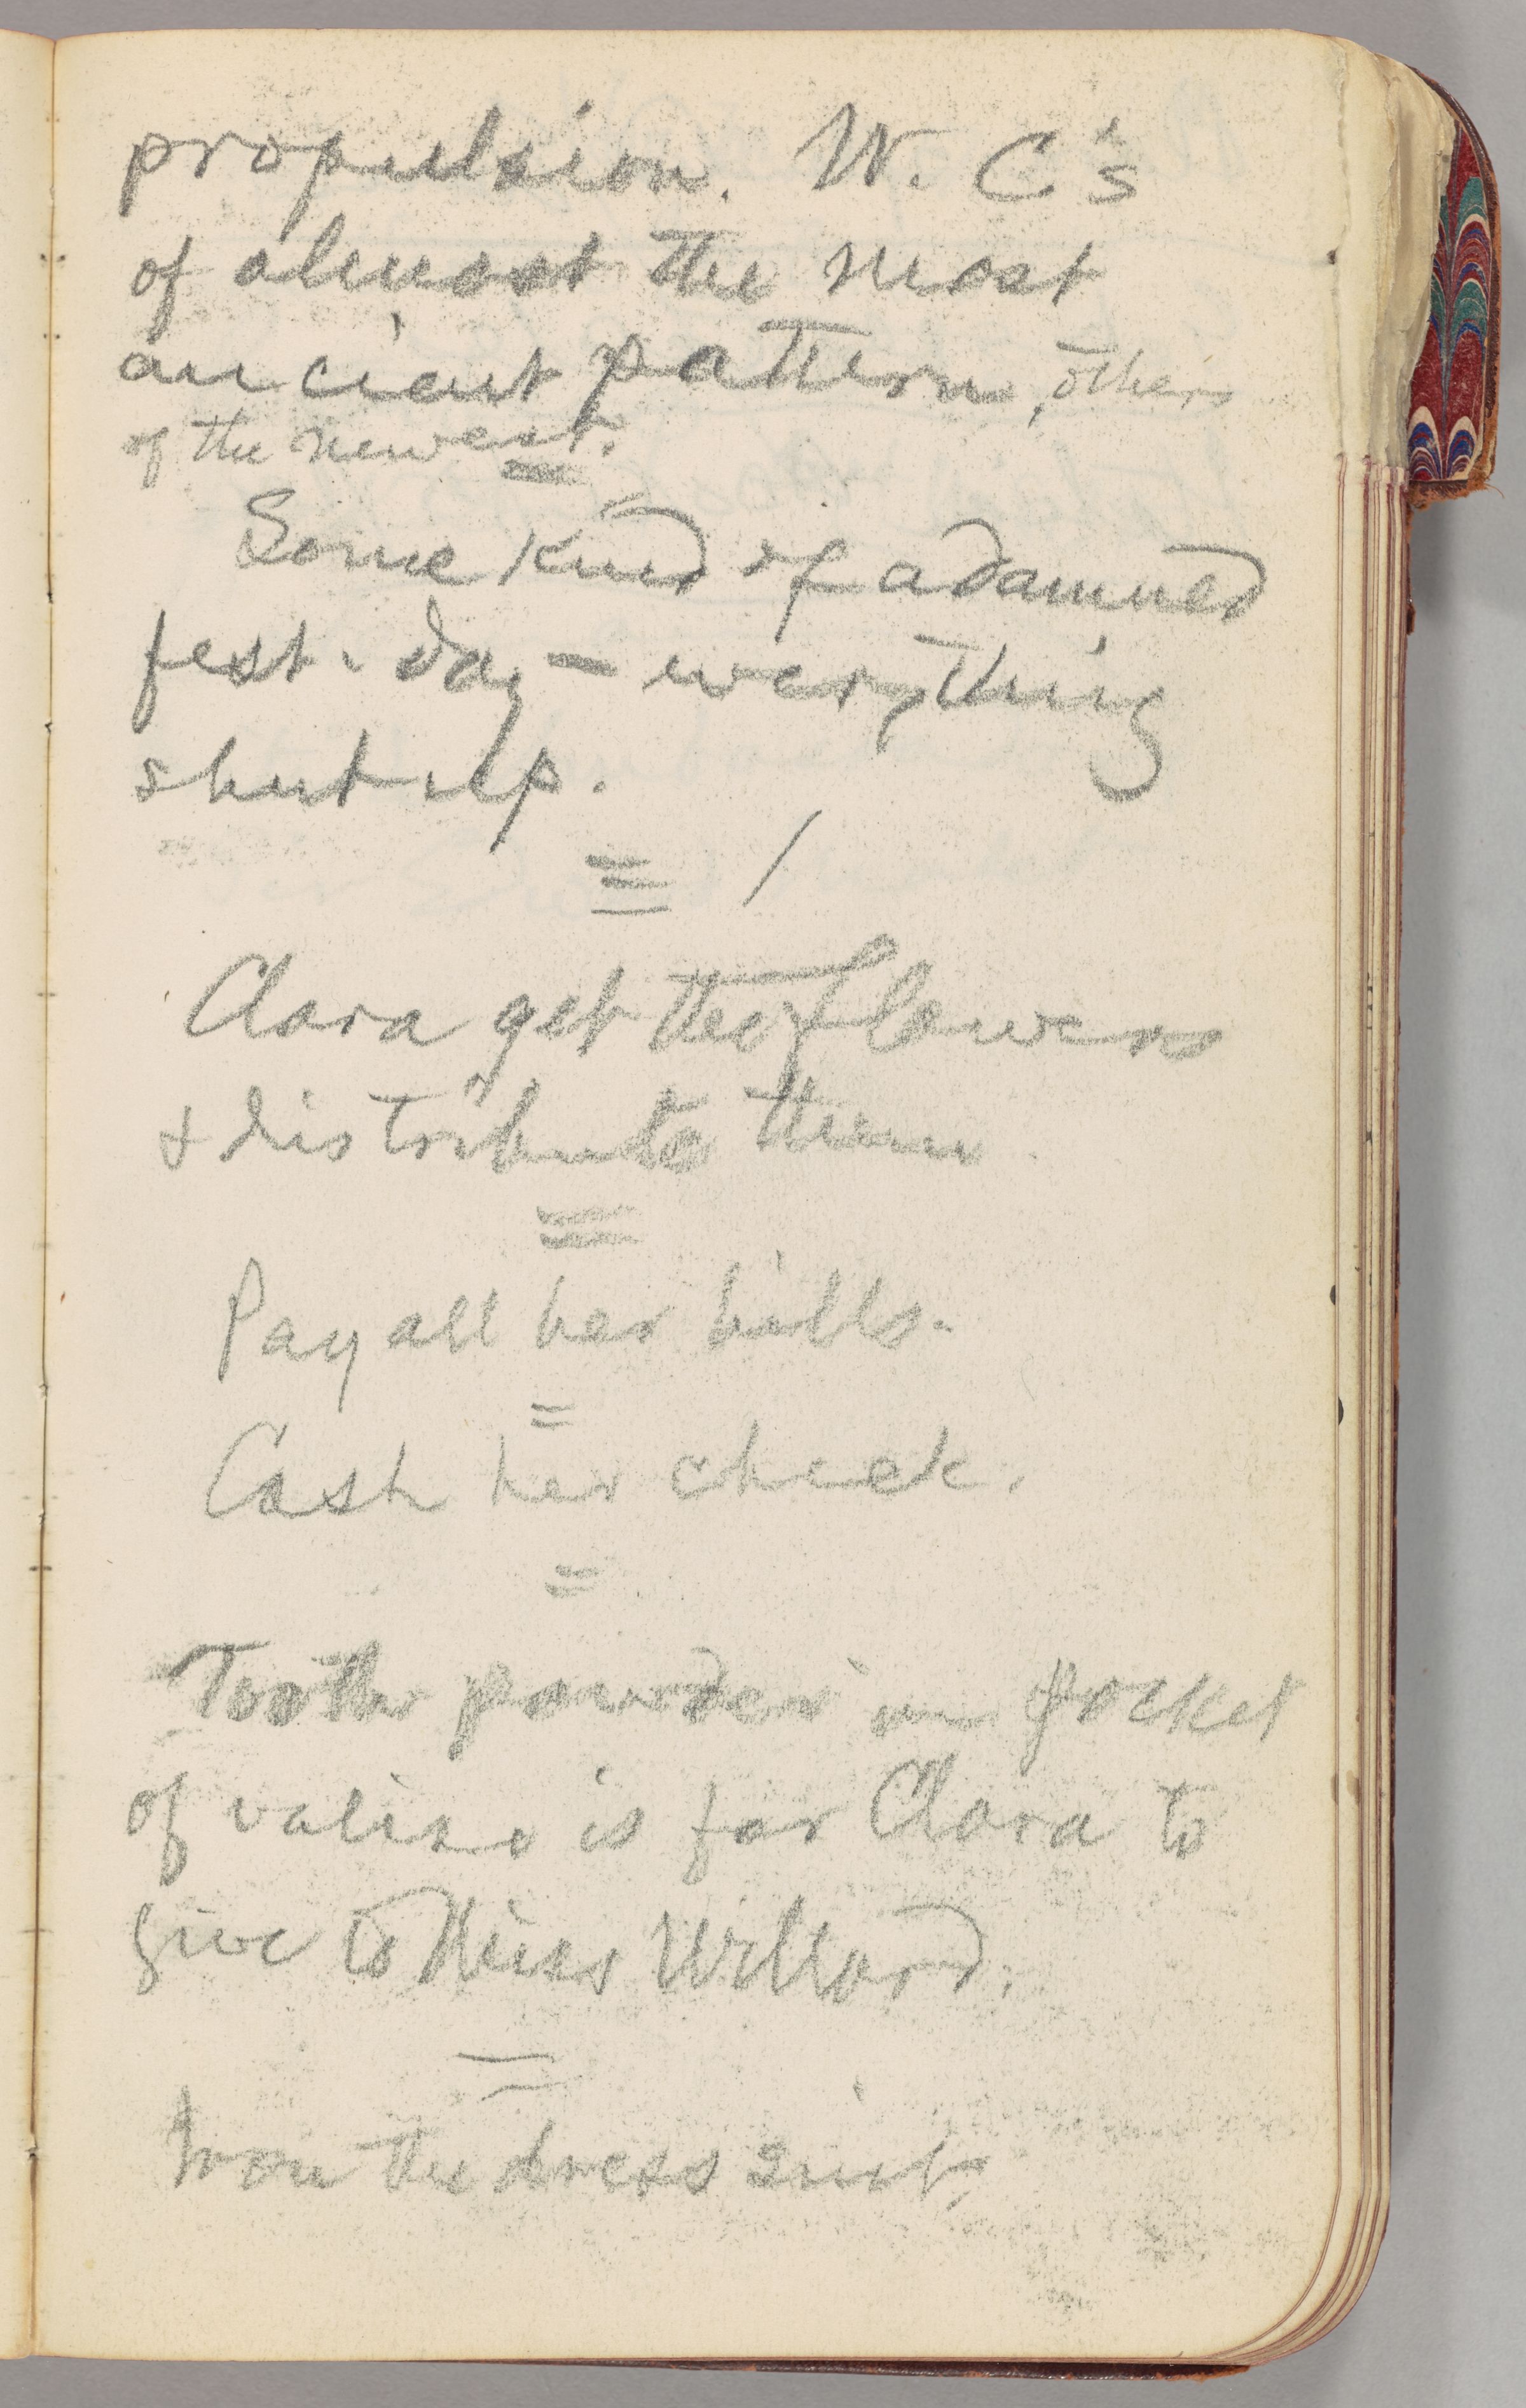 propulsion. W. C's
of almost the most
ancient pattern, others
of the newest.
Some kind of a damned
fest-day — everything
shut up.
Clara get the flowers
& distribute them
Pay all her bills.
Cash her check.
Tooth powder in pocket
of valise is for Clara to
give to Miss Willard.
Iron the dress suit.